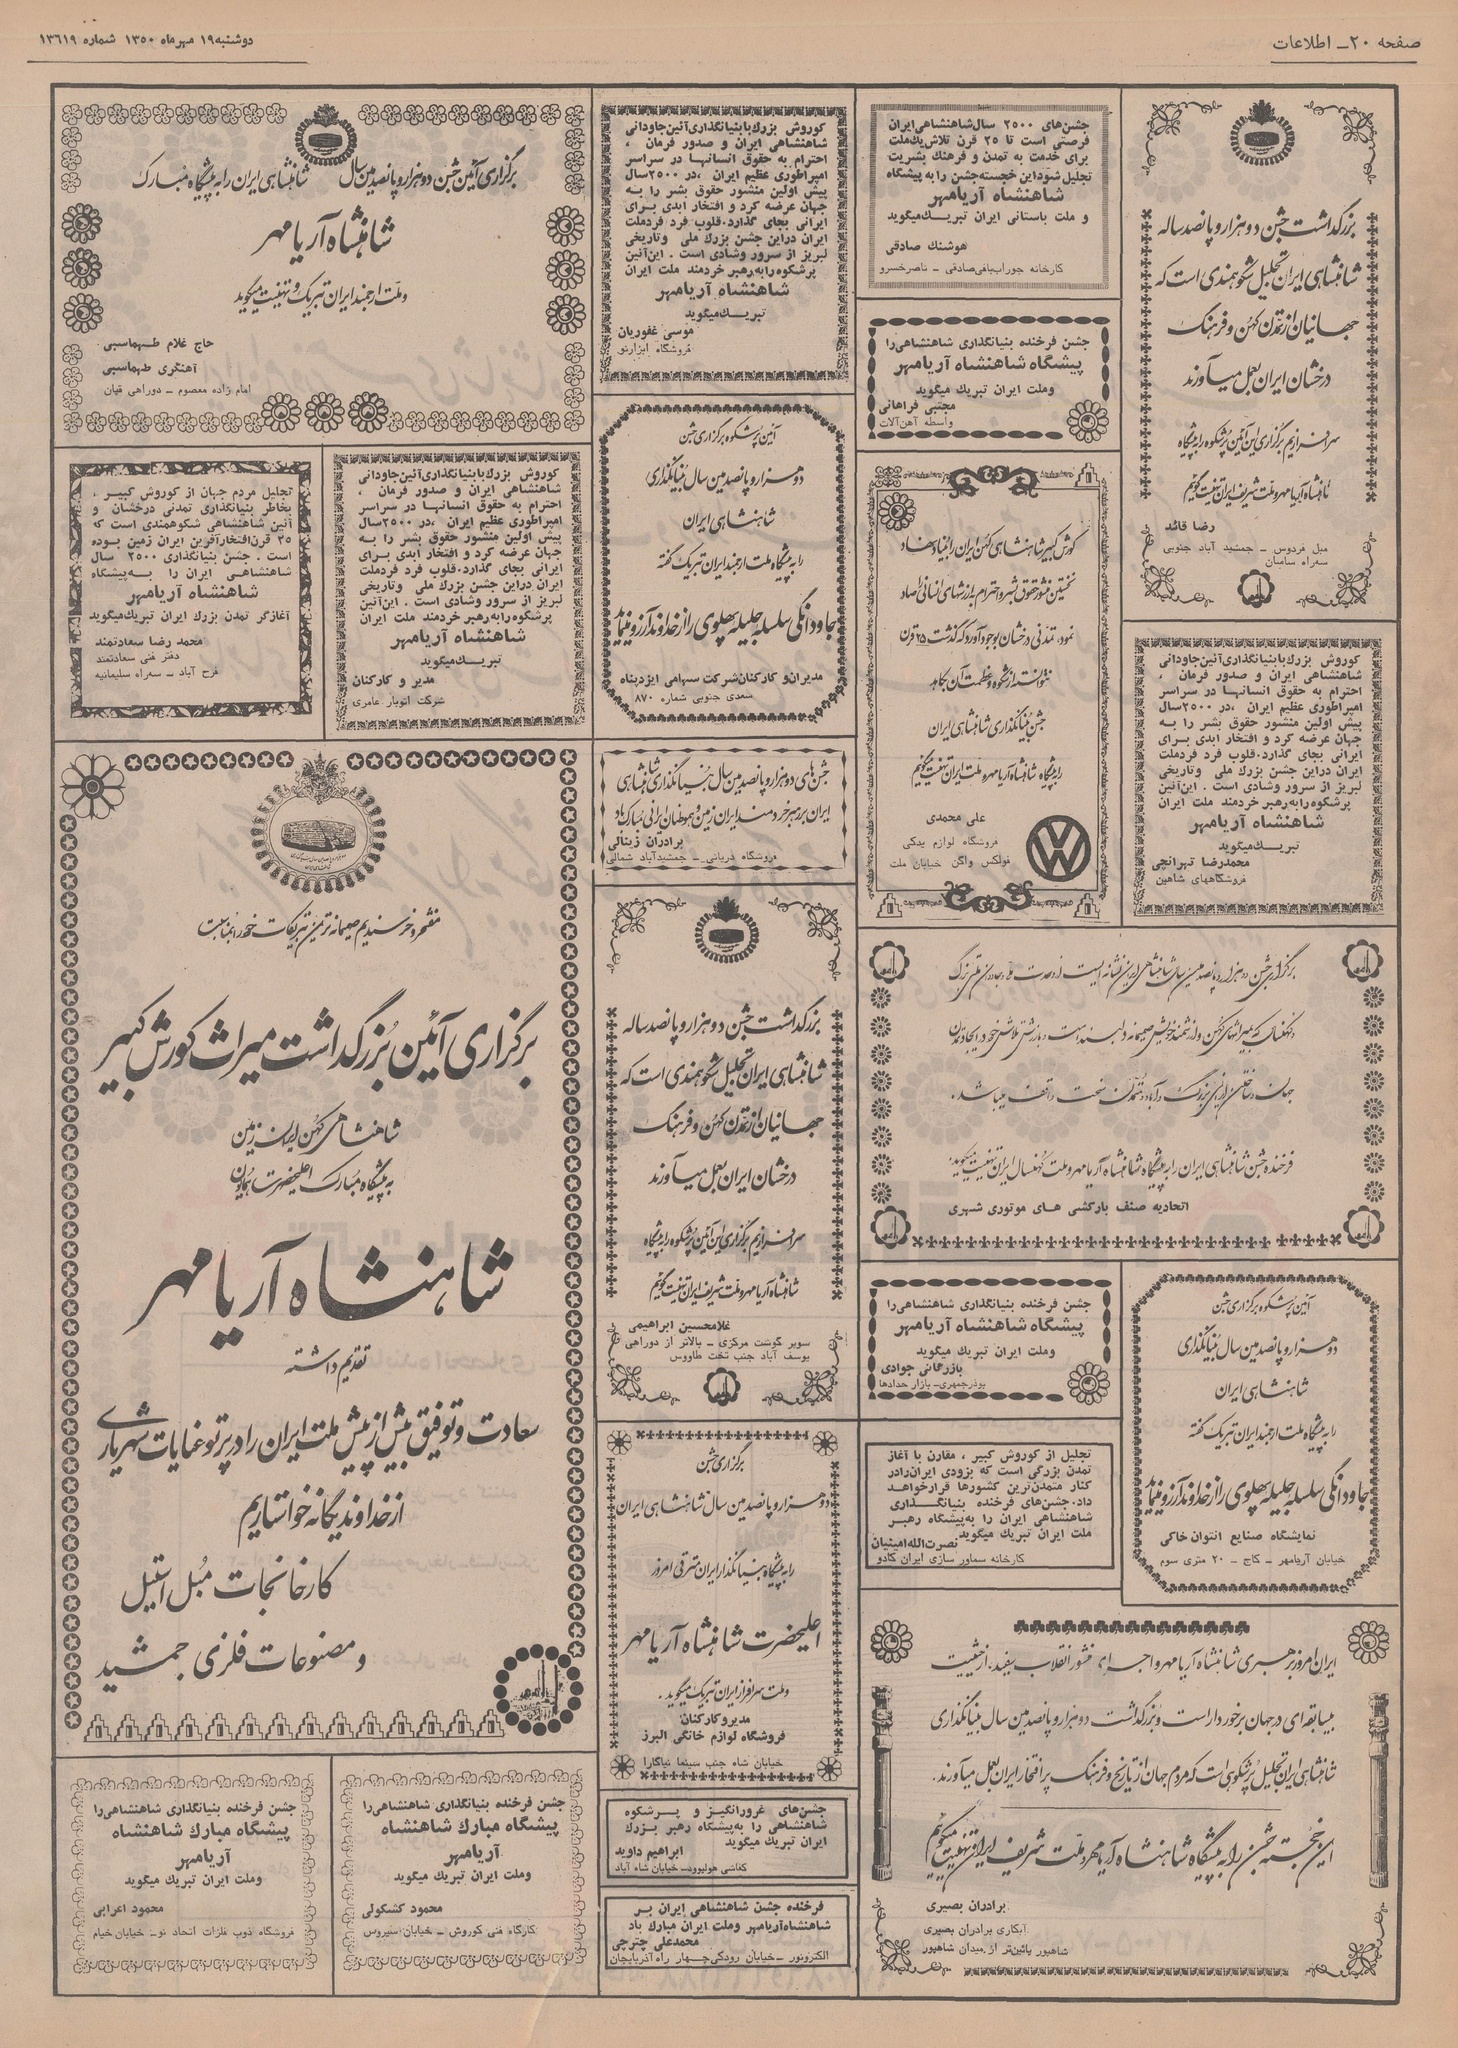 صفحه ۲۰ـ اطلاعات
دوشنبه ۱۹ مهر ماه ۱۳۵۰ شماره ۱۳۶۱۹
بزرگداشت جشن دو هزار و پانصد ساله
شاهنشاهی ایران تجلیل شکوهمندی است که
جهانیان از تمدن کهن و فرهنگ
درخشان ایران بعمل میآورند
سرافرازیم برگزاری این آئین پرشکوه را به پیشگاه
شاهنشاه آریامهر و ملت شریف ایران تهنیت گوئیم
رضا قائد
مبل فردوس ـ جمشید آباد جنوبی
سه‌راه سامان
کوروش بزرگ با بنیانگذاری آئین جاودانی
شاهنشاهی ایران و صدور فرمان ،
احترام به حقوق انسانها در سراسر
امپراطوری عظیم ایران ،در ۲۵۰۰سال
پیش اولین منشور حقوق بشر را به
جهان عرضه کرد و افتخار ابدی برای
ایرانی بجای گذارد. قلوب فرد فردملت
ایران دراین جشن بزرگ ملی وتاریخی
لبریز از سرور وشادی است . این‌آئین
پرشکوه رابه رهبر خردمند ملت ایران
شاهنشاه آریامهر
تبریك میگوید
محمدرضا تهرانچی
فروشگاههای شاهین
جشن‌های ۲۵۰۰ سال شاهنشاهی ایران
فرصتی است تا ۲۵ قرن تلاش یك ملت
برای خدمت به تمدن و فرهنگ بشریت
تجلیل شود این خجسته جشن را به پیشگاه
شاهنشاه آریامهر
و ملت باستانی ایران تبریك میگوید
هوشنگ صادقی
کارخانه جوراب‌بافی صادقی ـ ناصرخسرو
جشن فرخنده بنیانگذاری شاهنشاهی را
پیشگاه شاهنشاه آریامهر
وملت ایران تبریك میگوید
مجتبی فراهانی
واسطه آهن‌آلات
کورش کبیر شاهنشاهی کهن ایران را بنیاد نهاد
نخستین منشور حقوق بشر و احترام به ارزشهای انسانی را صادر
نمود، تمدنی درخشان بوجود آورد که گذشت ۲۵ قرن
نتوانسته از شکوه و عظمت آن بکاهد
جشن بنیانگذاری شاهنشاهی ایران
را به پیشگاه شاهنشاه آریامهر و ملت ایران تهنیت میگوئیم
علی محمدی
فروشگاه لوازم یدکی
فولکس واگن خیابان ملت
کوروش بزرگ با بنیانگذاری آئین جاودانی
شاهنشاهی ایران و صدور فرمان ،
احترام به حقوق انسانها در سراسر
امپراطوری عظیم ایران ،در ۲۵۰۰سال
پیش اولین منشور حقوق بشر را به
جهان عرضه کرد و افتخار ابدی برای
ایرانی بجای گذارد. قلوب فرد فردملت
ایران دراین جشن بزرگ ملی وتاریخی
لبریز از سرور وشادی است . این‌آئین
پرشکوه رابه رهبر خردمند ملت ایران
شاهنشاه آریامهر
تبریك میگوید
موسی غفوریان
فروشگاه ابزارنو
آئین پرشکوه برگزاری جشن
دو هزار و پانصدمین سال بنیانگذاری
شاهنشاهی ایران
را به پیشگاه ملت ارجمند ایران تبریک گفته
جاودانگی سلسله جلیله پهلوی را از خداوند آرزو مینماید
مدیران و کارکنان شرکت سهامی ایزدپناه
سعدی جنوبی شماره ۸۷۰
جشن‌های دو هزار و پانصدمین سال بنیانگذاری شاهنشاهی
ایران بر رهبر خردمند ایران زمین و هموطنان ایرانی مبارک باد
برادران زینالی
فروشگاه قربانی ـ جمشیدآباد شمالی
برگزاری آئین جشن دو هزار و پانصدمین سال شاهنشاهی ایران را به پیشگاه مبارک
شاهنشاه آریامهر
و ملت ارجمند ایران تبریک و تهنیت میگوید
حاج غلام طهماسبی
آهنگری طهماسبی
امام زاده معصوم ـ دوراهی قپان
کوروش بزرگ با بنیانگذاری آئین جاودانی
شاهنشاهی ایران و صدور فرمان ،
احترام به حقوق انسانها در سراسر
امپراطوری عظیم ایران ،در ۲۵۰۰سال
پیش اولین منشور حقوق بشر را به
جهان عرضه کرد و افتخار ابدی برای
ایرانی بجای گذارد. قلوب فرد فردملت
ایران دراین جشن بزرگ ملی وتاریخی
لبریز از سرور وشادی است . این‌آئین
پرشکوه رابه رهبر خردمند ملت ایران
شاهنشاه آریامهر
تبریك میگوید
مدیر و کارکنان
شرکت اتوبار عامری
تجلیل مردم جهان از کوروش کبیر ،
بخاطر بنیانگذاری تمدنی درخشان و
آئین شاهنشاهی شکوهمندی است که
۲۵ قرن افتخارآفرین ایران زمین بوده
است . جشن بنیانگذاری ۲۵۰۰ سال
شاهنشاهی ایران را به پیشگاه
شاهنشاه آریامهر
آغازگر تمدن بزرگ ایران تبریك میگوید
محمد رضا سعادتمند
دفتر فنی سعادتمند
فرح آباد ـ سه‌راه سلیمانیه
مفتخر و خرسندیم صمیمانه ترین تبریکات خود را بمناسبت
برگزاری آئین بزرگداشت میراث کورش کبیر
شاهنشاهی کهن ایران زمین
به پیشگاه مبارک اعلیحضرت همایون
شاهنشاه آریامهر
تقدیم داشته
سعادت و توفیق بیش از پیش ملت ایران را در پرتو عنایات شهریاری
از خداوند یگانه خواستاریم
کارخانجات مبل استیل
و مصنوعات فلزی جمشید
بزرگداشت جشن دو هزار و پانصد ساله
شاهنشاهی ایران تجلیل شکوهمندی است که
جهانیان از تمدن کهن و فرهنگ
درخشان ایران بعمل میآورند
سرافرازیم برگزاری این آئین پرشکوه را به پیشگاه
شاهنشاه آریامهر و ملت شریف ایران تهنیت گوئیم
غلامحسین ابراهیمی
سوپر گوشت مرکزی ـ بالاتر از دوراهی
یوسف آباد جنب تخت طاووس
برگزاری جشن دو هزار و پانصدمین سال شاهنشاهی ایران نشانه ایست از وحدت ملی
فرخنده جشن شاهنشاهی ایران را به پیشگاه شاهنشاه آریامهر و ملت کهنسال ایران تهنیت میگوید.
اتحادیه صنف بارکشی های موتوری شهری
جشن فرخنده بنیانگذاری شاهنشاهی را
پیشگاه شاهنشاه آریامهر
وملت ایران تبریك میگوید
بازرگانی جوادی
بوذرجمهری ـ بازار حدادها
آئین پرشکوه برگزاری جشن
دو هزار و پانصدمین سال بنیانگذاری
شاهنشاهی ایران
را به پیشگاه ملت ارجمند ایران تبریک گفته
جاودانگی سلسله جلیله پهلوی را از خداوند آرزو مینماید
نمایشگاه صنایع انتوان خاکی
خیابان آریامهر ـ کاج ـ ۲۰ متری سوم
تجلیل از کوروش کبیر ، مقارن با آغاز
تمدن بزرگی است که بزودی ایران رادر
کنار متمدن‌ترین کشورها قرارخواهد
داد. جشن‌های فرخنده بنیانگذاری
شاهنشاهی ایران را به پیشگاه رهبر
ملت ایران تبریك میگوید
نصرت‌الله امینیان
کارخانه سماور سازی ایران کادو
برگزاری جشن
دو هزار و پانصدمین سال شاهنشاهی ایران
را به پیشگاه بنیانگذار ایران مترقی امروز
اعلیحضرت شاهنشاه آریامهر
و ملت سرافراز ایران تبریک میگوید .
مدیر و کارکنان
فروشگاه لوازم خانگی البرز
خیابان شاه جنب سینما نیاگارا
ایران امروز برهبری شاهنشاه آریامهر و اجرای منشور انقلاب سفید، از موقعیت
بیسابقه‌ای در جهان برخوردار است و بزرگداشت دو هزار و پانصدمین سال بنیانگذاری
شاهنشاهی ایران تجلیل پرشکوهی است که مردم جهان از تاریخ و فرهنگ پر افتخار ایران بعمل میآورند.
این خجسته جشن را به پیشگاه شاهنشاه آریامهر و ملت شریف ایران تهنیت میگوئیم
برادران بصیری
آبکاری برادران بصیری
شاهپور پائین‌تر از میدان شاهپور
جشن‌های غرورانگیز و پرشکوه
شاهنشاهی را به پیشگاه رهبر بزرگ
ایران تبریك میگوید
ابراهیم داوید
کفاشی هولیوود ـ خیابان شاه آباد
فرخنده جشن شاهنشاهی ایران بر
شاهنشاه آریامهر وملت ایران مبارك باد
محمدعلی چترچی
الکترونور ـ خیابان رودکی چهار راه آذربایجان
جشن فرخنده بنیانگذاری شاهنشاهی را
پیشگاه مبارك شاهنشاه
آریامهر
وملت ایران تبریك میگوید
محمود کشکولی
کارگاه فنی کوروش ـ خیابان سیروس
جشن فرخنده بنیانگذاری شاهنشاهی را
پیشگاه مبارك شاهنشاه
آریامهر
وملت ایران تبریك میگوید
محمود اعرابی
فروشگاه ذوب فلزات اتحاد نو ـ خیابان خیام